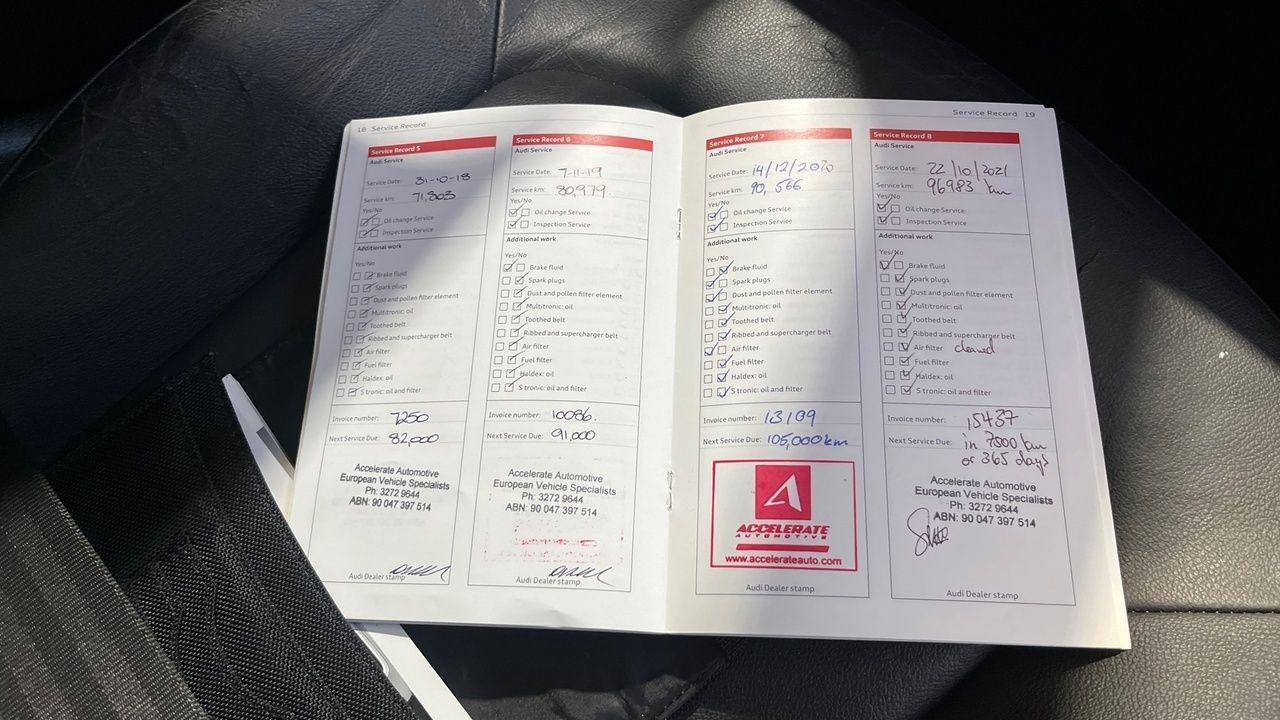 18 Service Record
Service Record 5
Audi Service
Service Date: 31-10-18
Service km: 71,803
Yes/No
Oil change Service
Inspection Service
Additional work
Yes/No
Brake fluid
Spark plugs
Dust and pollen filter element
Multitronic: oil
Toothed belt
Ribbed and supercharger belt
Air filter
Fuel filter
Haldex: oil
S tronic: oil and filter
Invoice number: 7250
Next Service Due: 82,000
Accelerate Automotive
European Vehicle Specialists
Ph: 3272 9644
ABN: 90 047 397 514
Audi Dealer stamp
Service Record 6
Audi Service
Service Date: 7-11-19
Service km: 80,979
Yes/No
Oil change Service
Inspection Service
Additional work
Yes/No
Brake fluid
Spark plugs
Dust and pollen filter element
Multitronic: oil
Toothed belt
Ribbed and supercharger belt
Air filter
Fuel filter
Haldex: oil
S tronic: oil and filter
Invoice number: 10086.
Next Service Due: 91,000
Accelerate Automotive
European Vehicle Specialists
Ph: 3272 9644
ABN: 90 047 397 514
Audi Dealer stamp
Service Record 19
Service Record 7
Audi Service
Service Date: 14/12/2020
Service km: 90,566
Yes/No
Oil change Service
Inspection Service
Additional work
Yes/No
Brake fluid
Spark plugs
Dust and pollen filter element
Multitronic: oil
Toothed belt
Ribbed and supercharger belt
Air filter
Fuel filter
Haldex: oil
S tronic: oil and filter
Invoice number: 13139
Next Service Due: 105,000km
ACCELERATE
AUTOMOTIVE
www.accelerateauto.com
Audi Dealer stamp
Service Record 8
Audi Service
Service Date: 22/10/2021
Service km: 96983 km
Yes/No
Oil change Service
Inspection Service
Additional work
Yes/No
Brake fluid
Spark plugs
Dust and pollen filter element
Multitronic: oil
Toothed belt
Ribbed and supercharger belt
Air filter cleaned
Fuel filter
Haldex: oil
S tronic: oil and filter
Invoice number: 15437
Next Service Due: in 7500 km
or 365 days
Accelerate Automotive
European Vehicle Specialists
Ph: 3272 9644
ABN: 90 047 397 514
Audi Dealer stamp